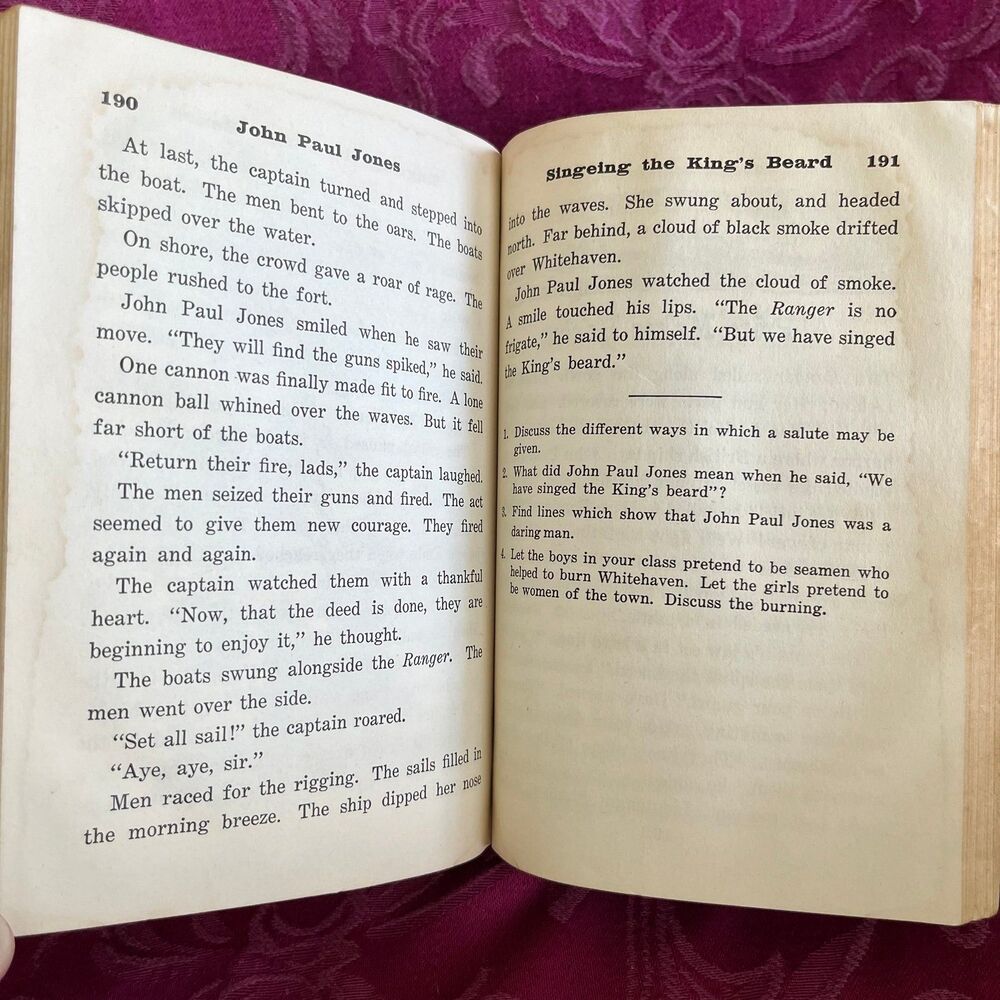 190
John Paul Jones
At last, the captain turned and stepped into
the boat. The men bent to the oars. The boats
skipped over the water.
On shore, the crowd gave a roar of rage. The
people rushed to the fort.
John Paul Jones smiled when he saw their
move. “They will find the guns spiked,” he said.
One cannon was finally made fit to fire. A lone
cannon ball whined over the waves. But it fell
far short of the boats.
“Return their fire, lads,” the captain laughed.
The men seized their guns and fired. The act
seemed to give them new courage. They fired
again and again.
The captain watched them with a thankful
heart. “Now, that the deed is done, they are
beginning to enjoy it,” he thought.
The boats swung alongside the Ranger. The
men went over the side.
“Set all sail!” the captain roared.
“Aye, aye, sir.”
Men raced for the rigging. The sails filled in
the morning breeze. The ship dipped her nose
Singeing the King’s Beard 191
into the waves. She swung about, and headed
north. Far behind, a cloud of black smoke drifted
over Whitehaven.
John Paul Jones watched the cloud of smoke.
A smile touched his lips. “The Ranger is no
frigate,” he said to himself. “But we have singed
the King’s beard.”
1. Discuss the different ways in which a salute may be
given.
2. What did John Paul Jones mean when he said, “We
have singed the King’s beard”?
3. Find lines which show that John Paul Jones was a
daring man.
4. Let the boys in your class pretend to be seamen who
helped to burn Whitehaven. Let the girls pretend to
be women of the town. Discuss the burning.